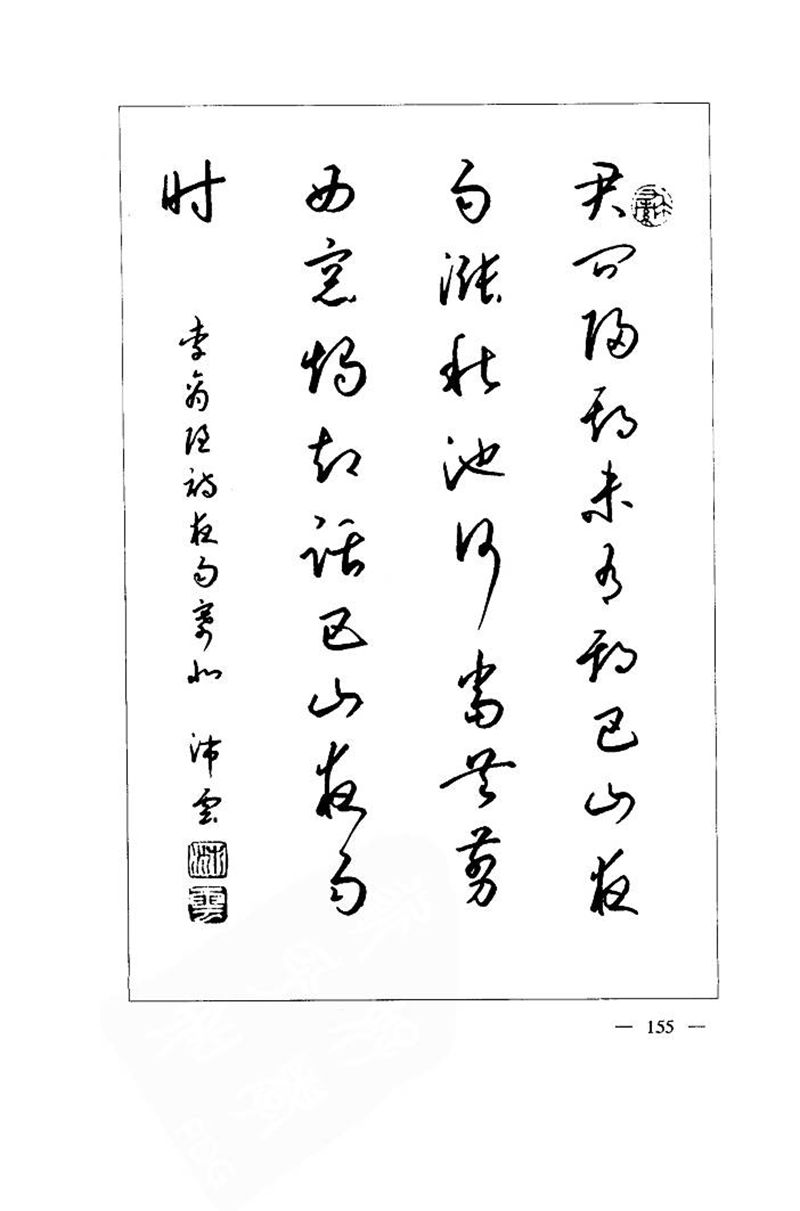 君问归期未有期巴山夜
雨涨秋池何当共剪
西窗烛却话巴山夜雨
时
李商隐诗夜雨寄北 沛雲
沛
雲
— 155 —